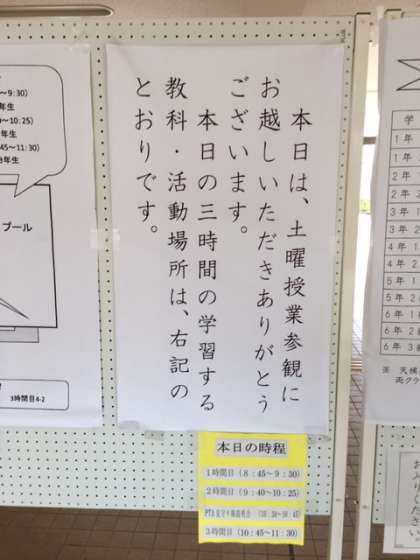 本日は、土曜授業参観に
お越しいただきありがとう
ございます。
本日の三時間の学習する
教科・活動場所は、右記の
とおりです。
本日の時程
1時間目(8:45〜9:30)
2時間目(9:40〜10:25)
3時間目(10:45〜11:30)
〜9:30)
年生
〜10:25)
年生
45〜11:30)
年生
プール
3時間目4-2
学
1年
1年
2年
2年
3年
3年
4年
4年
5年
5年
6年
6年
6年
※ 天候
両クラ